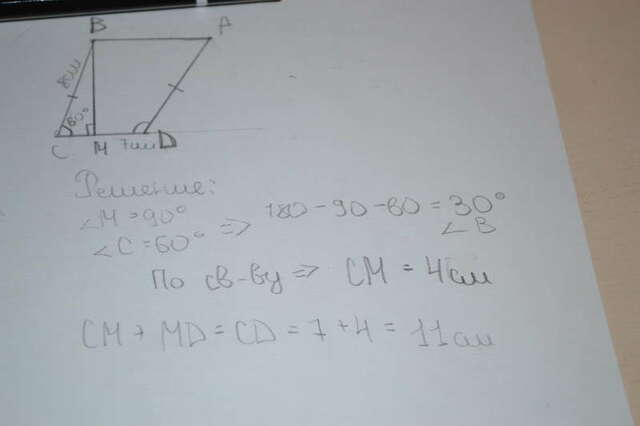 B A
8см
60°
C M 7см D
Решение:
∠M = 90°
∠C = 60° => 180 - 90 - 60 = 30°
∠B
По св-ву => CM = 4см
CM + MD = CD = 7 + 4 = 11см